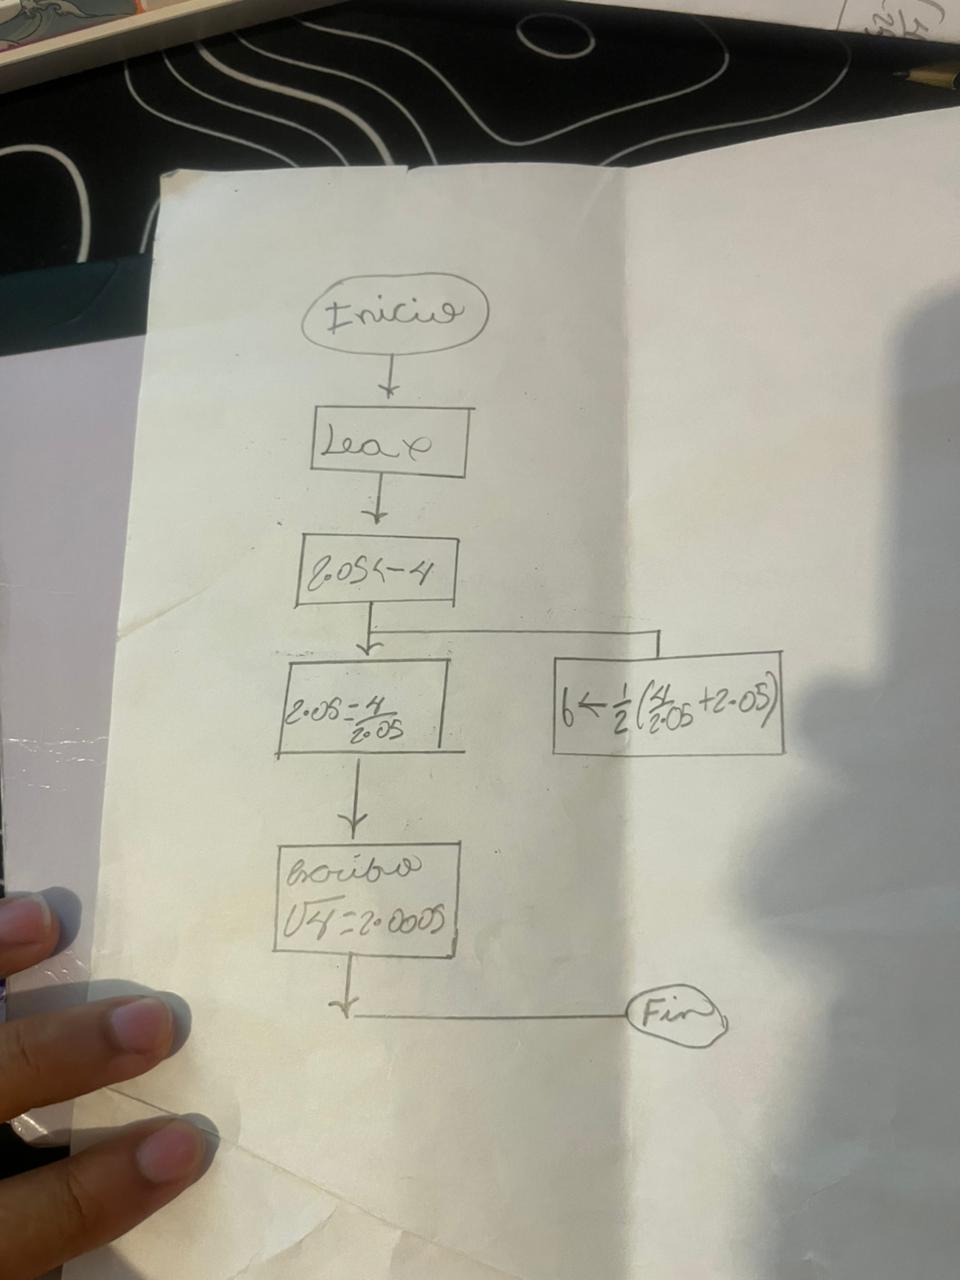 Inicio
Lea x
2.05 ← 4
2.05 = 4/2.05
b ← 1/2 (4/2.05 + 2.05)
Escriba
√4 = 2.0005
Fin